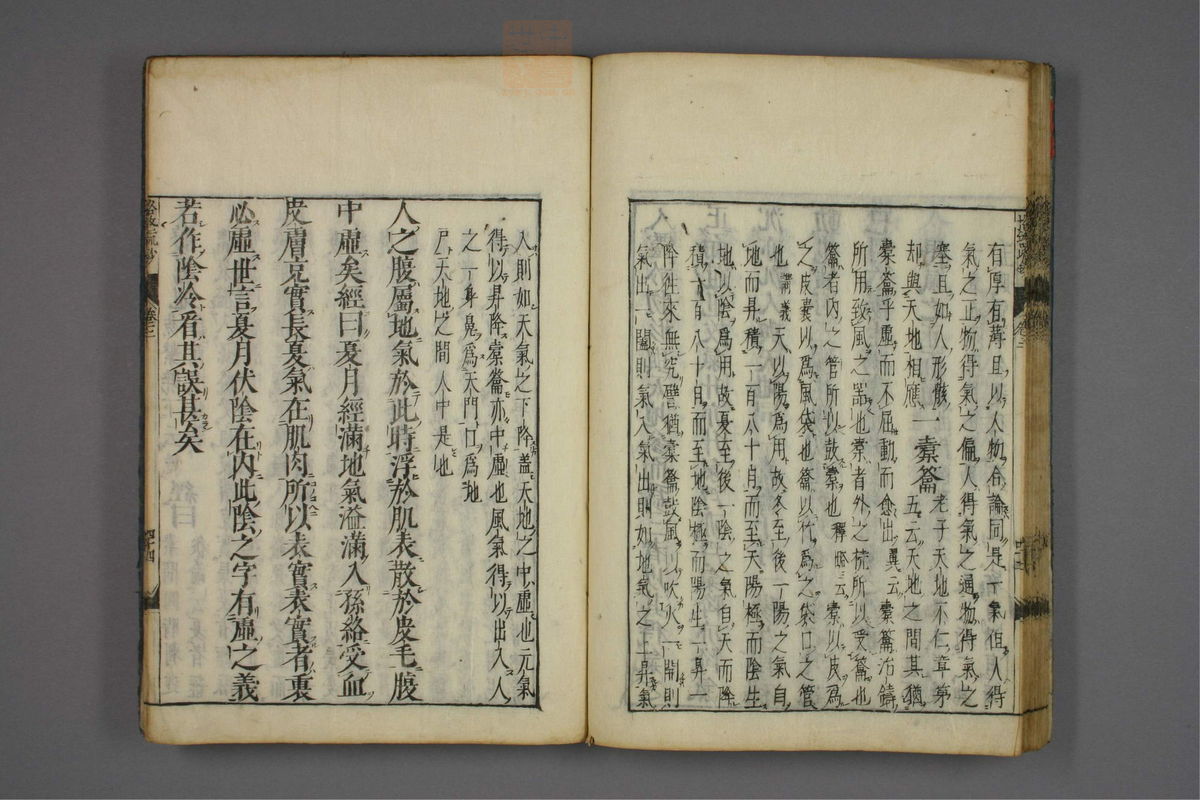 有厚有薄且以人物合論同是一氣但人得
氣之正物得氣之偏人得氣之通物得氣之
塞且如人形骸
却與天地相應 一槖籥 老子天地不仁章第五云天地之間其猶
槖籥乎虛而不屈動而愈出翼云槖籥冶鑄
所用致風之器也槖者外之椟所以受籥也
籥者内之管所以鼓槖也釋略云槖以皮為
之皮囊以為風袋也籥以竹為之袋口之管
也講義天以陽為用故冬至後一陽之氣自
地而昇積一百八十日而至天陽極而陰生
地以陰為用故夏至後一陰之氣自天而降
積一百八十日而至地陰極而陽生一昇一
降往來無究譬猶槖籥鼓風以吹火一闔則
氣出一闢則氣入氣出則如地氣之上昇氣
入則如天氣之下降盖天地之中虛也元氣
得以昇降槖籥亦中虛也風氣得以出入人
之一身鼻為天門口為地
戸天地之間人中是也
人之腹屬地氣於此時浮於肌表散於皮毛腹
中虛矣經曰夏月經滿地氣溢滿入孫絡受血
皮膚充實長夏氣在肌肉所以表實表實者裏
必虛世言夏月伏陰在内此陰之字有虛之義
若作陰冷看其誤甚矣
卷二
四十四